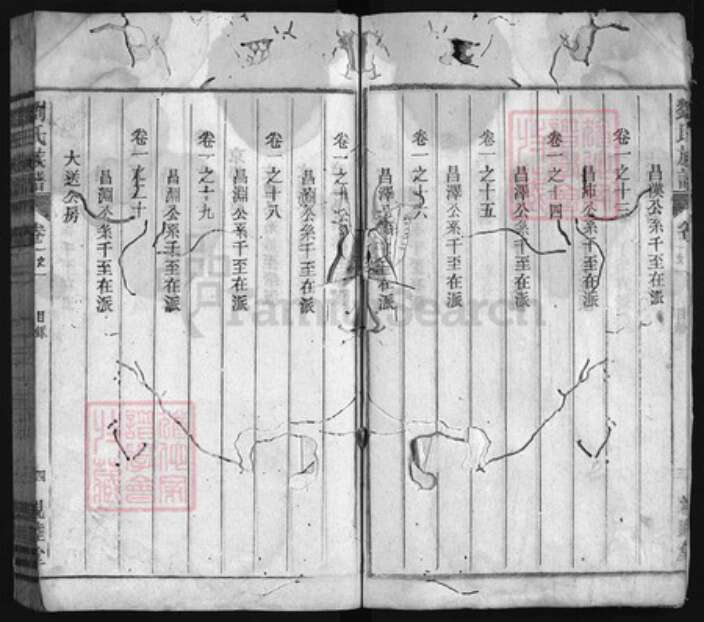 昌淇公系千至在派
卷一之十三
昌沛公系千至在派
卷一之十四
昌澤公系千至在派
卷一之十五
昌澤公系千至在派
卷一之十六
昌澤公系千至在派
卷一之十七
昌淵公系千至在派
卷一之十八
昌淵公系千至在派
卷一之十九
昌淵公系千至在派
卷一之二十
昌淵公系千至在派
大逵公房
劉氏族譜
卷一之
目錄
四
親睦堂
FamilySearch